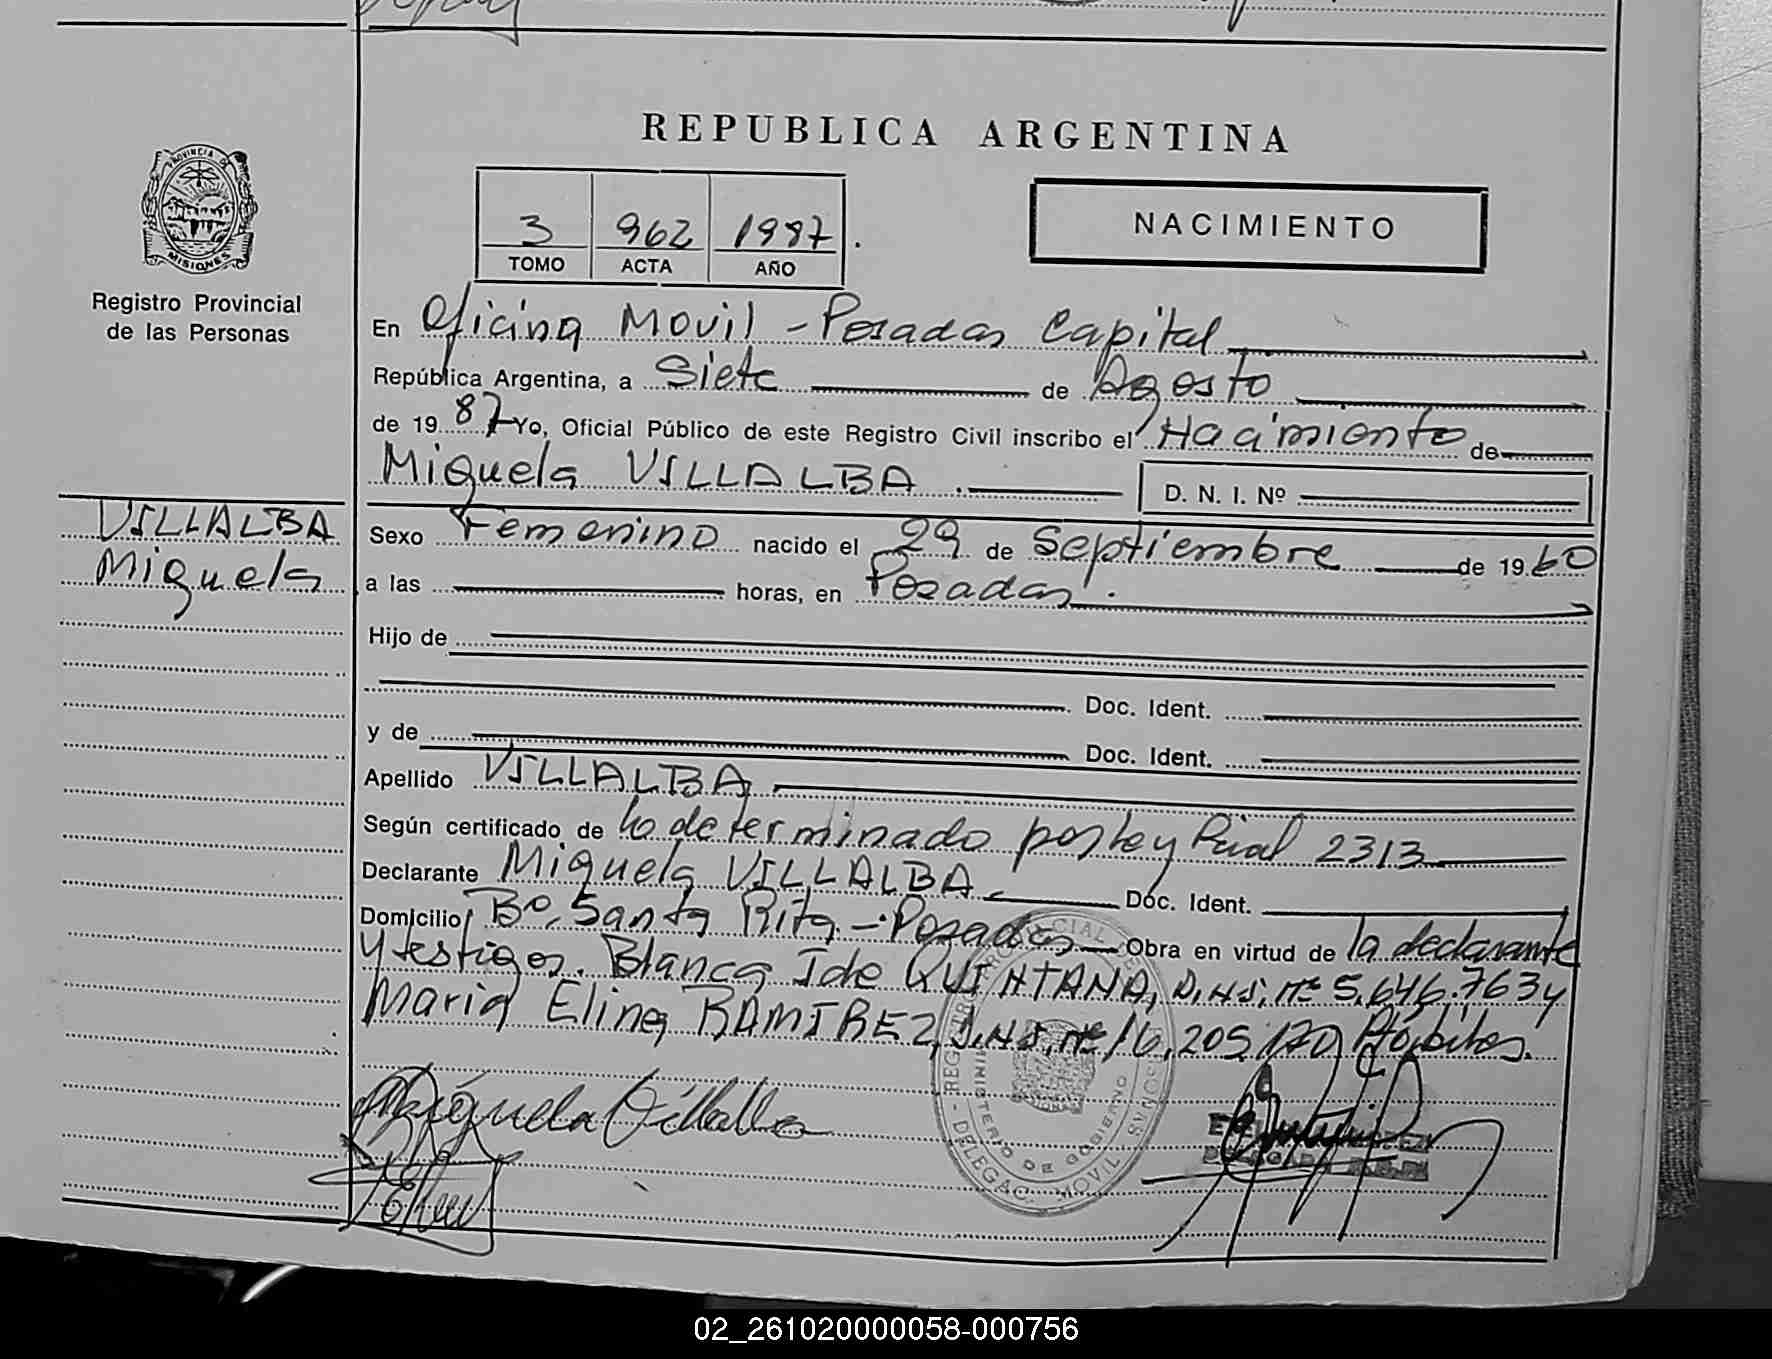 REPUBLICA ARGENTINA
PROVINCIA DE
MISIONES
Registro Provincial
de las Personas
3 962 1987.
TOMO ACTA AÑO
NACIMIENTO
En Oficina Movil - Posadas Capital
República Argentina, a Siete de Agosto
de 1987 Yo, Oficial Público de este Registro Civil inscribo el Nacimiento de
Miguela VILLALBA. D. N. I. Nº
VILLALBA
Miguela
Sexo Femenino nacido el 29 de Septiembre de 1960
a las horas, en Posadas.
Hijo de
Doc. Ident.
y de Doc. Ident.
Apellido VILLALBA
Según certificado de Lo determinado por Ley Pcial 2313
Declarante Miguela VILLALBA Doc. Ident.
Domicilio Bº. Santa Rita - Posadas Obra en virtud de la declarante
y testigos. Blanca Ide QUINTANA, D.N.I. nº 5.646.763 y
Maria Elina RAMIREZ, D.N.I. nº 16.205.170 Hábiles.
Miguela Villalba
DELEGAC. MOVIL
MINISTERIO DE GOBIERNO
02_261020000058-000756